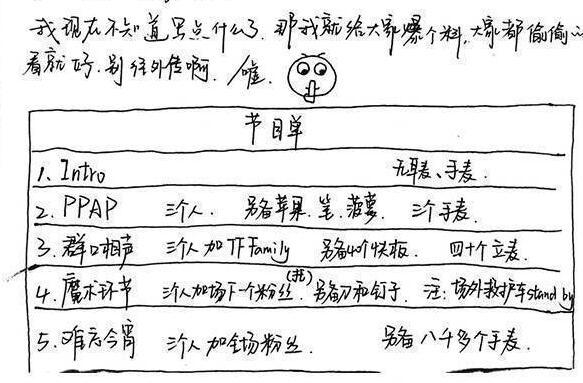 我现在不知道写点什么了,那我就给大家爆个料,大家都偷偷
看就好,别往外传啊,嘘.
节目单
1. Intro 无耳麦、手麦.
2. PPAP 三个人. 另备苹果.笔.菠萝. 三个手麦.
3. 群口相声 三个人加TF Family 另备40个快板. 四十个立麦.
4. 魔术环节 三个人加场下一个粉丝(托). 另备刀和钉子. 注:场外救护车stand by
5. 难忘今宵 三个人加全场粉丝. 另备八千多个手麦.